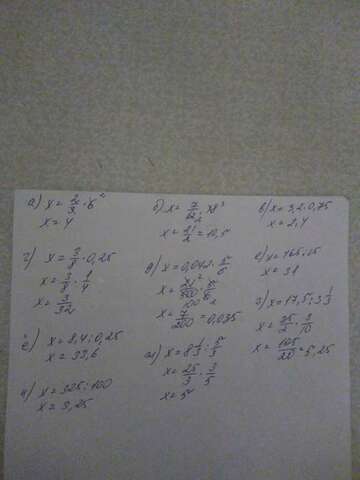 а) x = 2/3 · 6²
x = 4
б) x = 7/12 · 18³
x = 21/2 = 10,5
в) x = 3,2 · 0,75
x = 2,4
г) x = 3/8 · 0,25
x = 3/8 · 1/4
x = 3/32
д) x = 0,042 · 5/6
x = 7/200 = 0,035
е) x = 765 : 25
x = 31
ё) x = 8,4 : 0,25
x = 33,6
ж) x = 8 1/3 : 5/3
x = 25/3 · 3/5
x = 5
з) x = 17,5 : 3 1/3
x = 35/2 · 3/10
x = 105/20 = 5,25
и) x = 325 : 100
x = 3,25